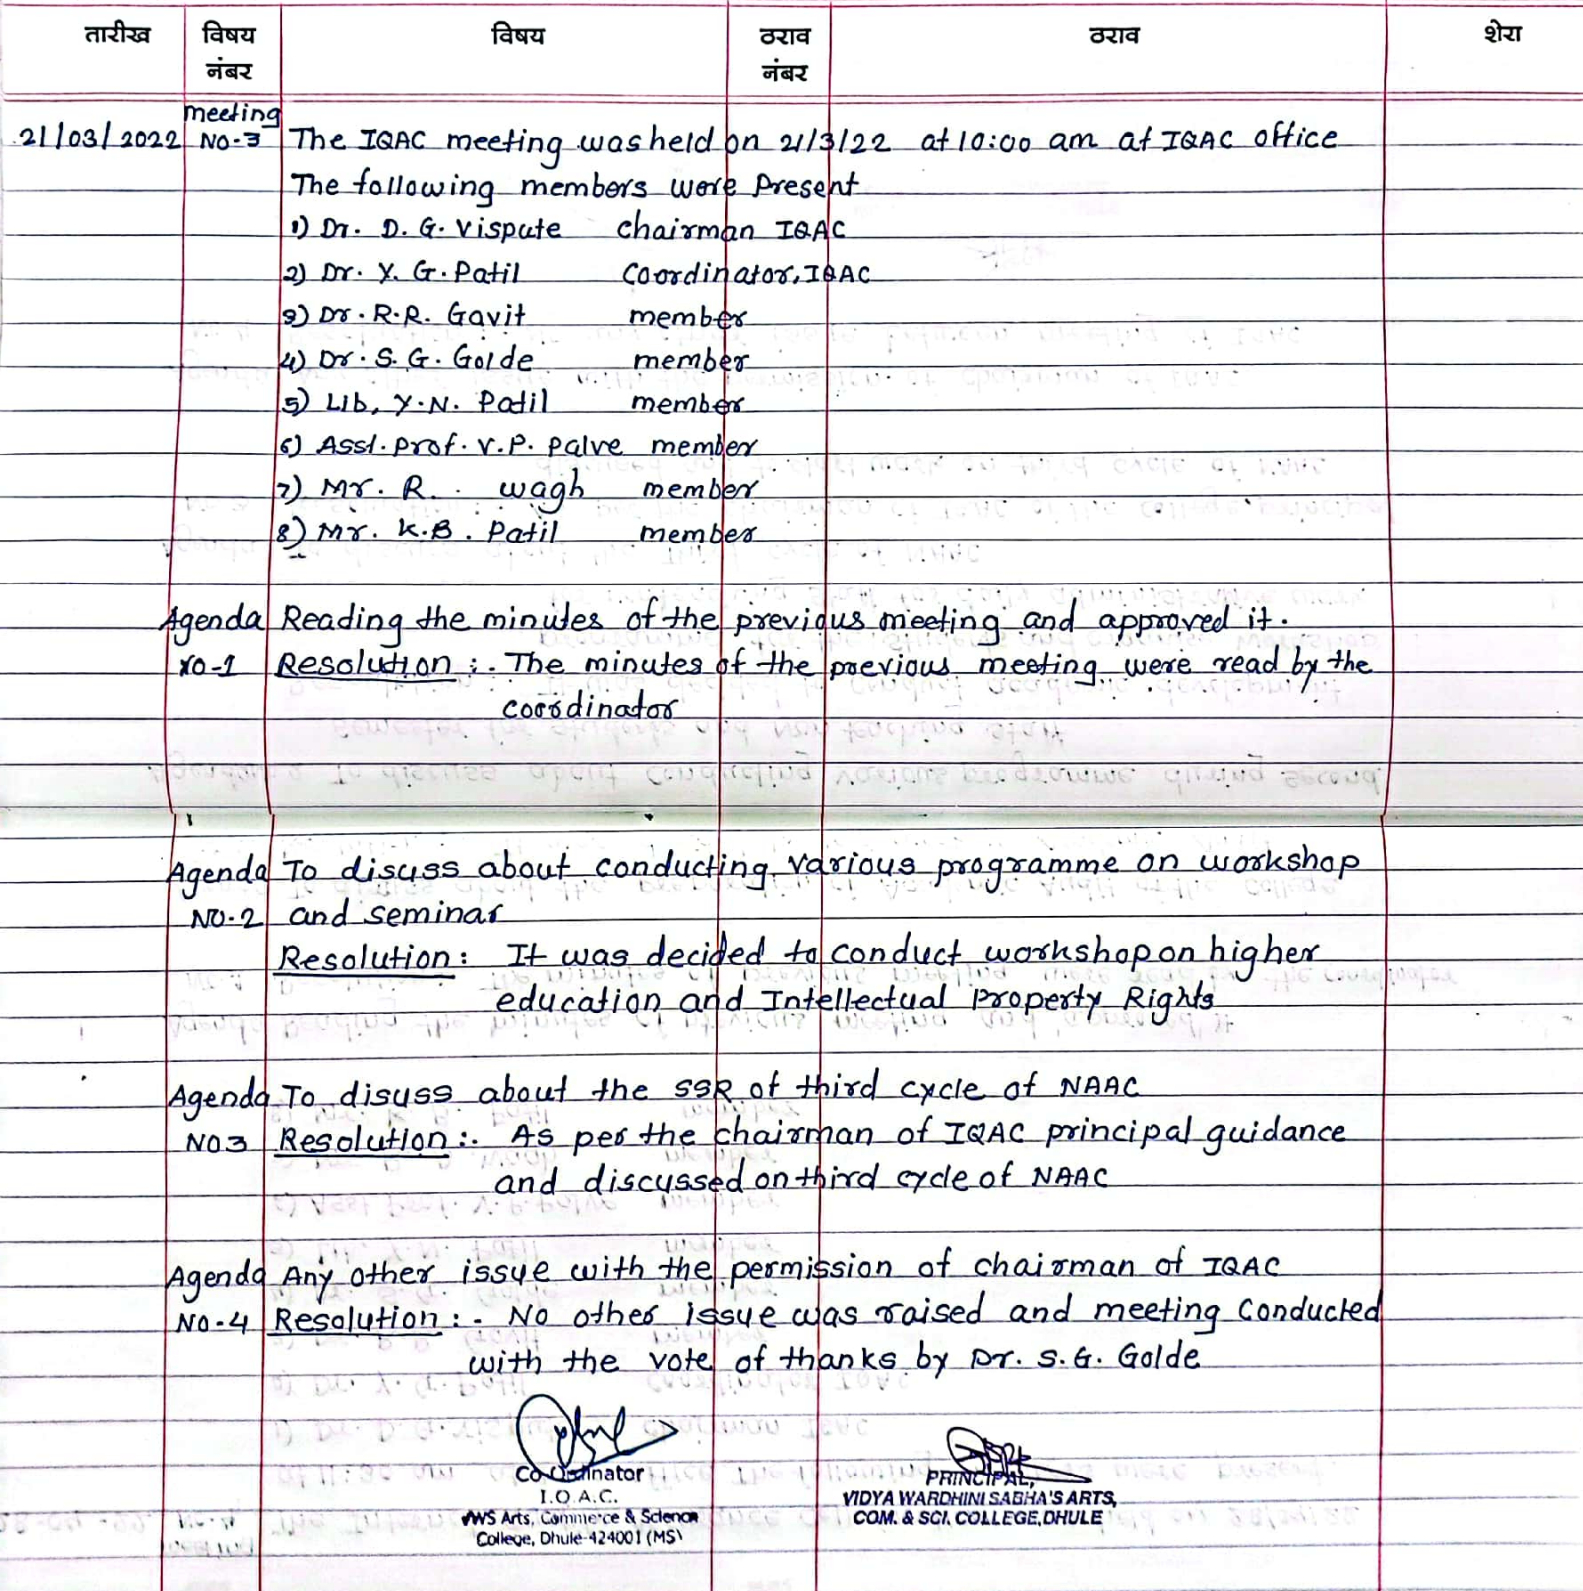 तारीख विषय नंबर विषय ठराव नंबर ठराव शेरा
meeting
21/03/2022 NO-3 The IQAC meeting was held on 21/3/22 at 10:00 am at IQAC office
The following members were Present
1) Dr. D. G. Vispute chairman IQAC
2) Dr. Y. G. Patil Coordinator, IQAC
3) Dr. R.R. Gavit member
4) Dr. S. G. Golde member
5) Lib, Y.N. Patil member
6) Asst. Prof. V.P. Palve member
7) Mr. R. wagh member
8) Mr. K.B. Patil member
Agenda Reading the minutes of the previous meeting and approved it.
NO-1 Resolution :. The minutes of the previous meeting were read by the
coordinator
Agenda To discuss about conducting various programme on workshop
NO-2 and seminar
Resolution : It was decided to conduct workshop on higher
education and Intellectual Property Rights
Agenda To disuss about the SSR of third cycle of NAAC
NO3 Resolution :. As per the chairman of IQAC principal guidance
and discussed on third cycle of NAAC
Agenda Any other issue with the permission of chairman of IQAC
NO-4 Resolution :- No other issue was raised and meeting Conducted
with the vote of thanks by Dr. S.G. Golde
Co-Ordinator
I.Q.A.C.
VWS Arts, Commerce & Science
College, Dhule-424001 (MS)
PRINCIPAL,
VIDYA WARDHINI SABHA'S ARTS,
COM. & SCI. COLLEGE, DHULE